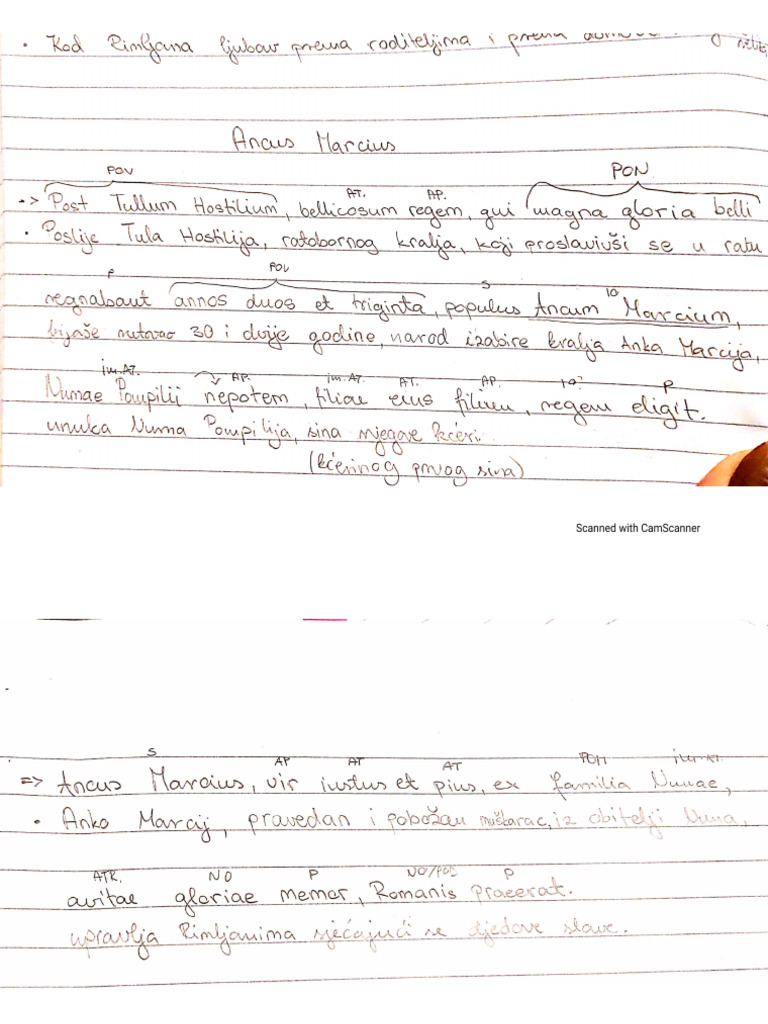 • Kod Rimljana ljubav prema roditeljima i prema
Ancus Marcius
POV PON.
AT. AP.
-> Post Tullum Hostilium, bellicosum regem, qui magna gloria belli
• Poslije Tula Hostilija, ratobornog kralja, koji proslavivši se u ratu
P POV S IO
regnabaut annos duos et triginta, populus Ancum Marcium,
bijaše 30 i dvije godine, narod izabire kralja Anka Marcija,
im.AT. AP. im.AT. AT. AP. P
Numae Pompilii nepotem, filiae eius filium, regem eligit.
unuka Numa Pompilija, sina njegove kćeri.
(kćerinog prvog sina)
Scanned with CamScanner
S AP AT AT POM im.AT.
=> Ancus Marcius, vir iustus et pius, ex familia Numae,
• Anko Marcij, pravedan i pobožan muškarac, iz obitelji Numa,
ATR. NO P NO/POS P
avitae gloriae memor, Romanis praeerat.
upravlja Rimljanima sjećajući se djedove slave.